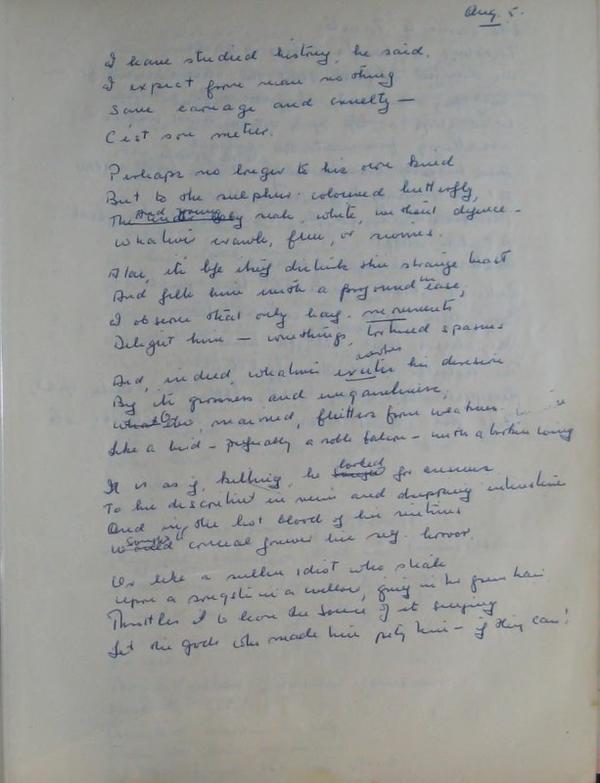 Aug. 5.
I have studied history, he said.
I expect from man nothing
Save carnage and cruelty —
C'est son metier.
Perhaps no longer to his own kind
But to the sulphur-coloured butterfly,
The And young baby seal, white, without defence —
Whatever crawls, flies, or swims.
Alas, it's life itself disturbs this strange beast
And fills him with a profound unease;
I observe that only half-movements
Delight him — writhings, tortured spasms
And, indeed, whatever excites his derision
By its grossness and ungainliness,
What, maimed, flutters from weakness
Like a bird — preferably a noble falcon — with a broken wing
It is as if, killing, he looked for answers
To his discontent in vein and dripping intestine
And in the hot blood of his victims
Would Sought conceal forever his self-horror.
Or like a sullen idiot who steals
upon a songster in a willow, in his green hair
Throttles it to learn the source of its singing
Let the gods who made him pity him — if they can!